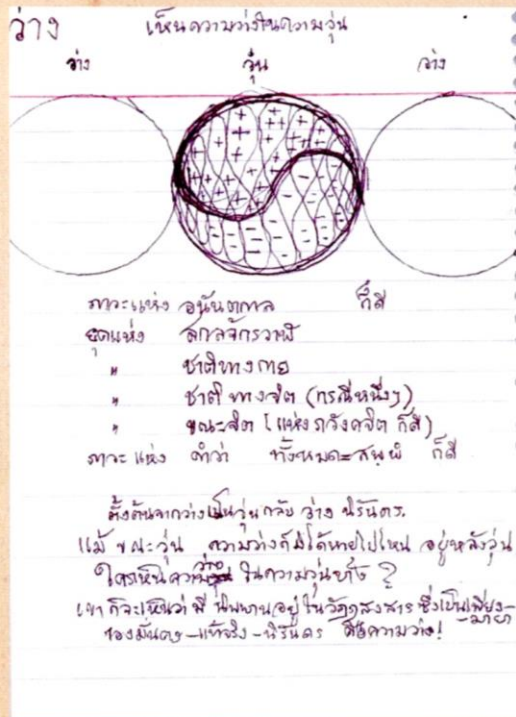 ว่าง เห็นความว่างในความวุ่น
ว่าง วุ่น ว่าง
ภาวะแห่ง อนันตกาล ก็ดี
ยุคแห่ง สกลจักรวาฬ
" ชาติทางกาย
" ชาติทางจิต (กรณีหนึ่งๆ)
" ขณะจิต (แห่งภวังคจิต ก็ดี)
ภาวะแห่ง คำว่า ทั้งหมด=สพฺพํ ก็ดี
ตั้งต้นจากว่างเป็นวุ่นกลับ ว่าง นิรันดร.
แม้ ขณะวุ่น ความว่างก็มิได้หายไปไหน อยู่หลังวุ่น
ใครเห็นความว่าง ในความวุ่นบ้าง ?
เขาก็จะเห็นว่า มี นิพพานอยู่ในวัฏฏสงสาร ซึ่งเป็นเพียง-มายา
ของมั่นคง-แท้จริง-นิรันดร คือความว่าง!